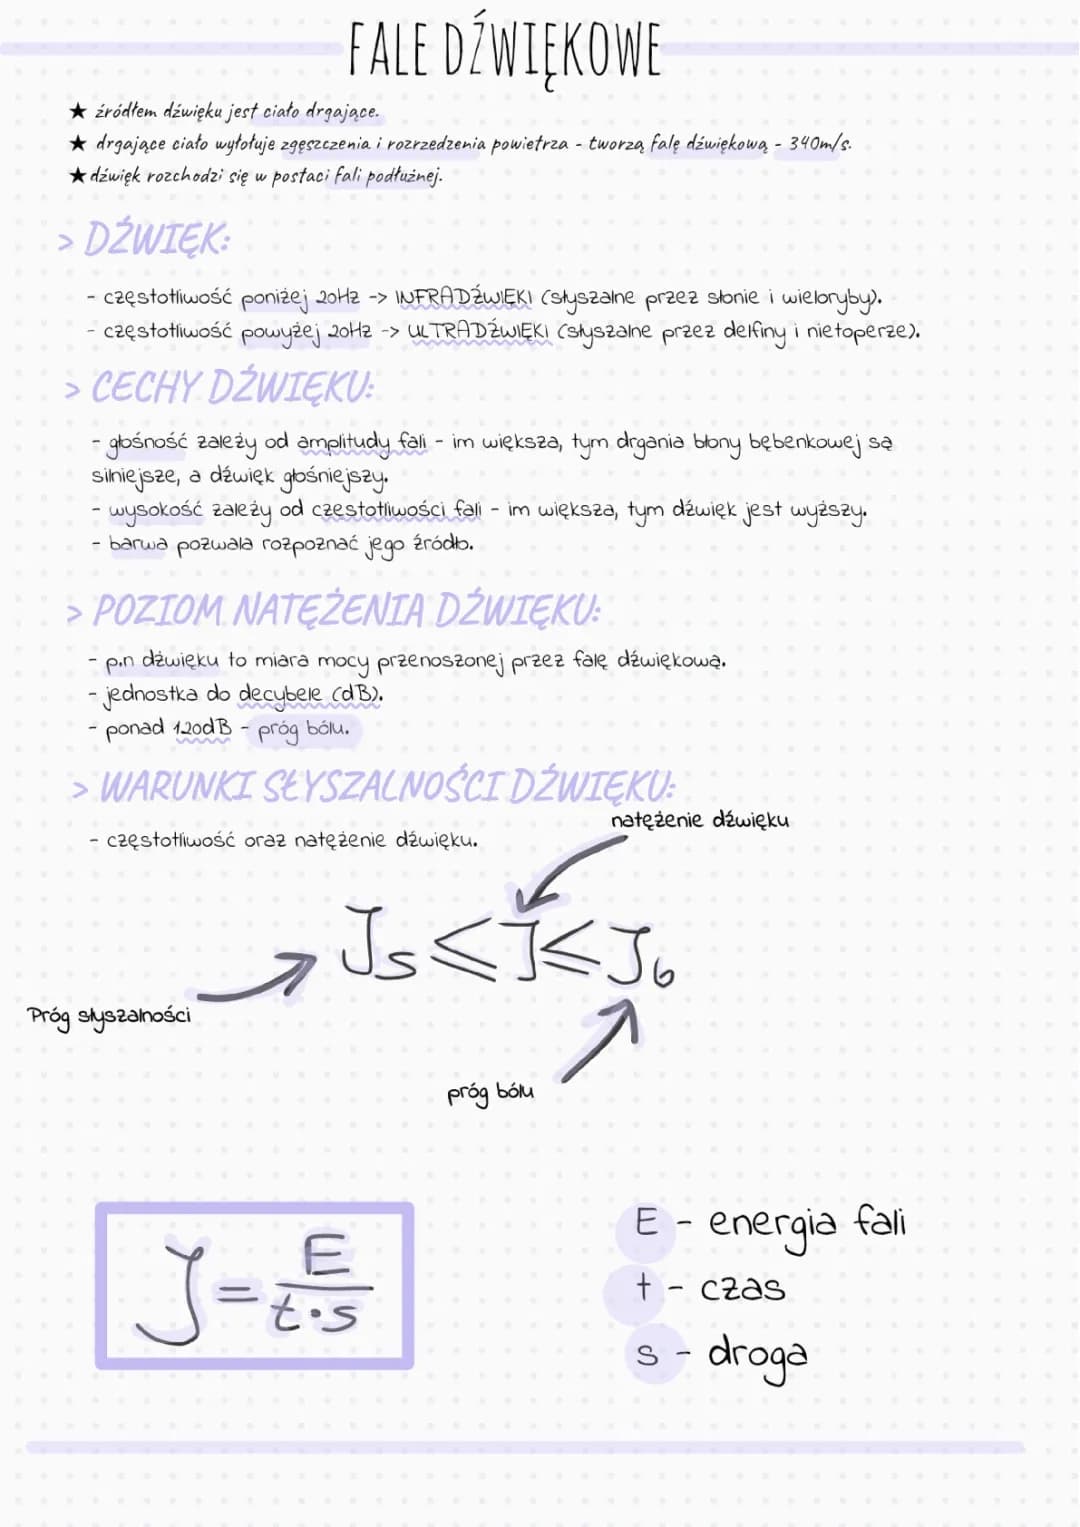 FALE DŹWIĘKOWE
★ źródłem dźwięku jest ciało drgające.
★ drgające ciało wyłołuje zgęszczenia i rozrzedzenia powietrza - tworzą falę dźwiękową - 340m/s.
★ dźwięk rozchodzi się w postaci fali podłużnej.
> DŹWIĘK:
- częstotliwość poniżej 20Hz -> INFRADŹWIĘKI (słyszalne przez słonie i wieloryby).
- częstotliwość powyżej 20Hz -> ULTRADŹWIĘKI (słyszalne przez delfiny i nietoperze).
> CECHY DŹWIĘKU:
- głośność zależy od amplitudy fali - im większa, tym drgania błony bębenkowej są
silniejsze, a dźwięk głośniejszy.
- wysokość zależy od częstotliwości fali - im większa, tym dźwięk jest wyższy.
- barwa pozwala rozpoznać jego źródło.
> POZIOM NATĘŻENIA DŹWIĘKU:
- p.n dźwięku to miara mocy przenoszonej przez falę dźwiękową.
- jednostka do decybele (dB).
- ponad 120dB - próg bólu.
> WARUNKI SŁYSZALNOŚCI DŹWIĘKU:
natężenie dźwięku
- częstotliwość oraz natężenie dźwięku.
Js ≤ J ≤ Jb
Próg słyszalności
próg bólu
J = E / t·s
E - energia fali
t - czas
s - droga